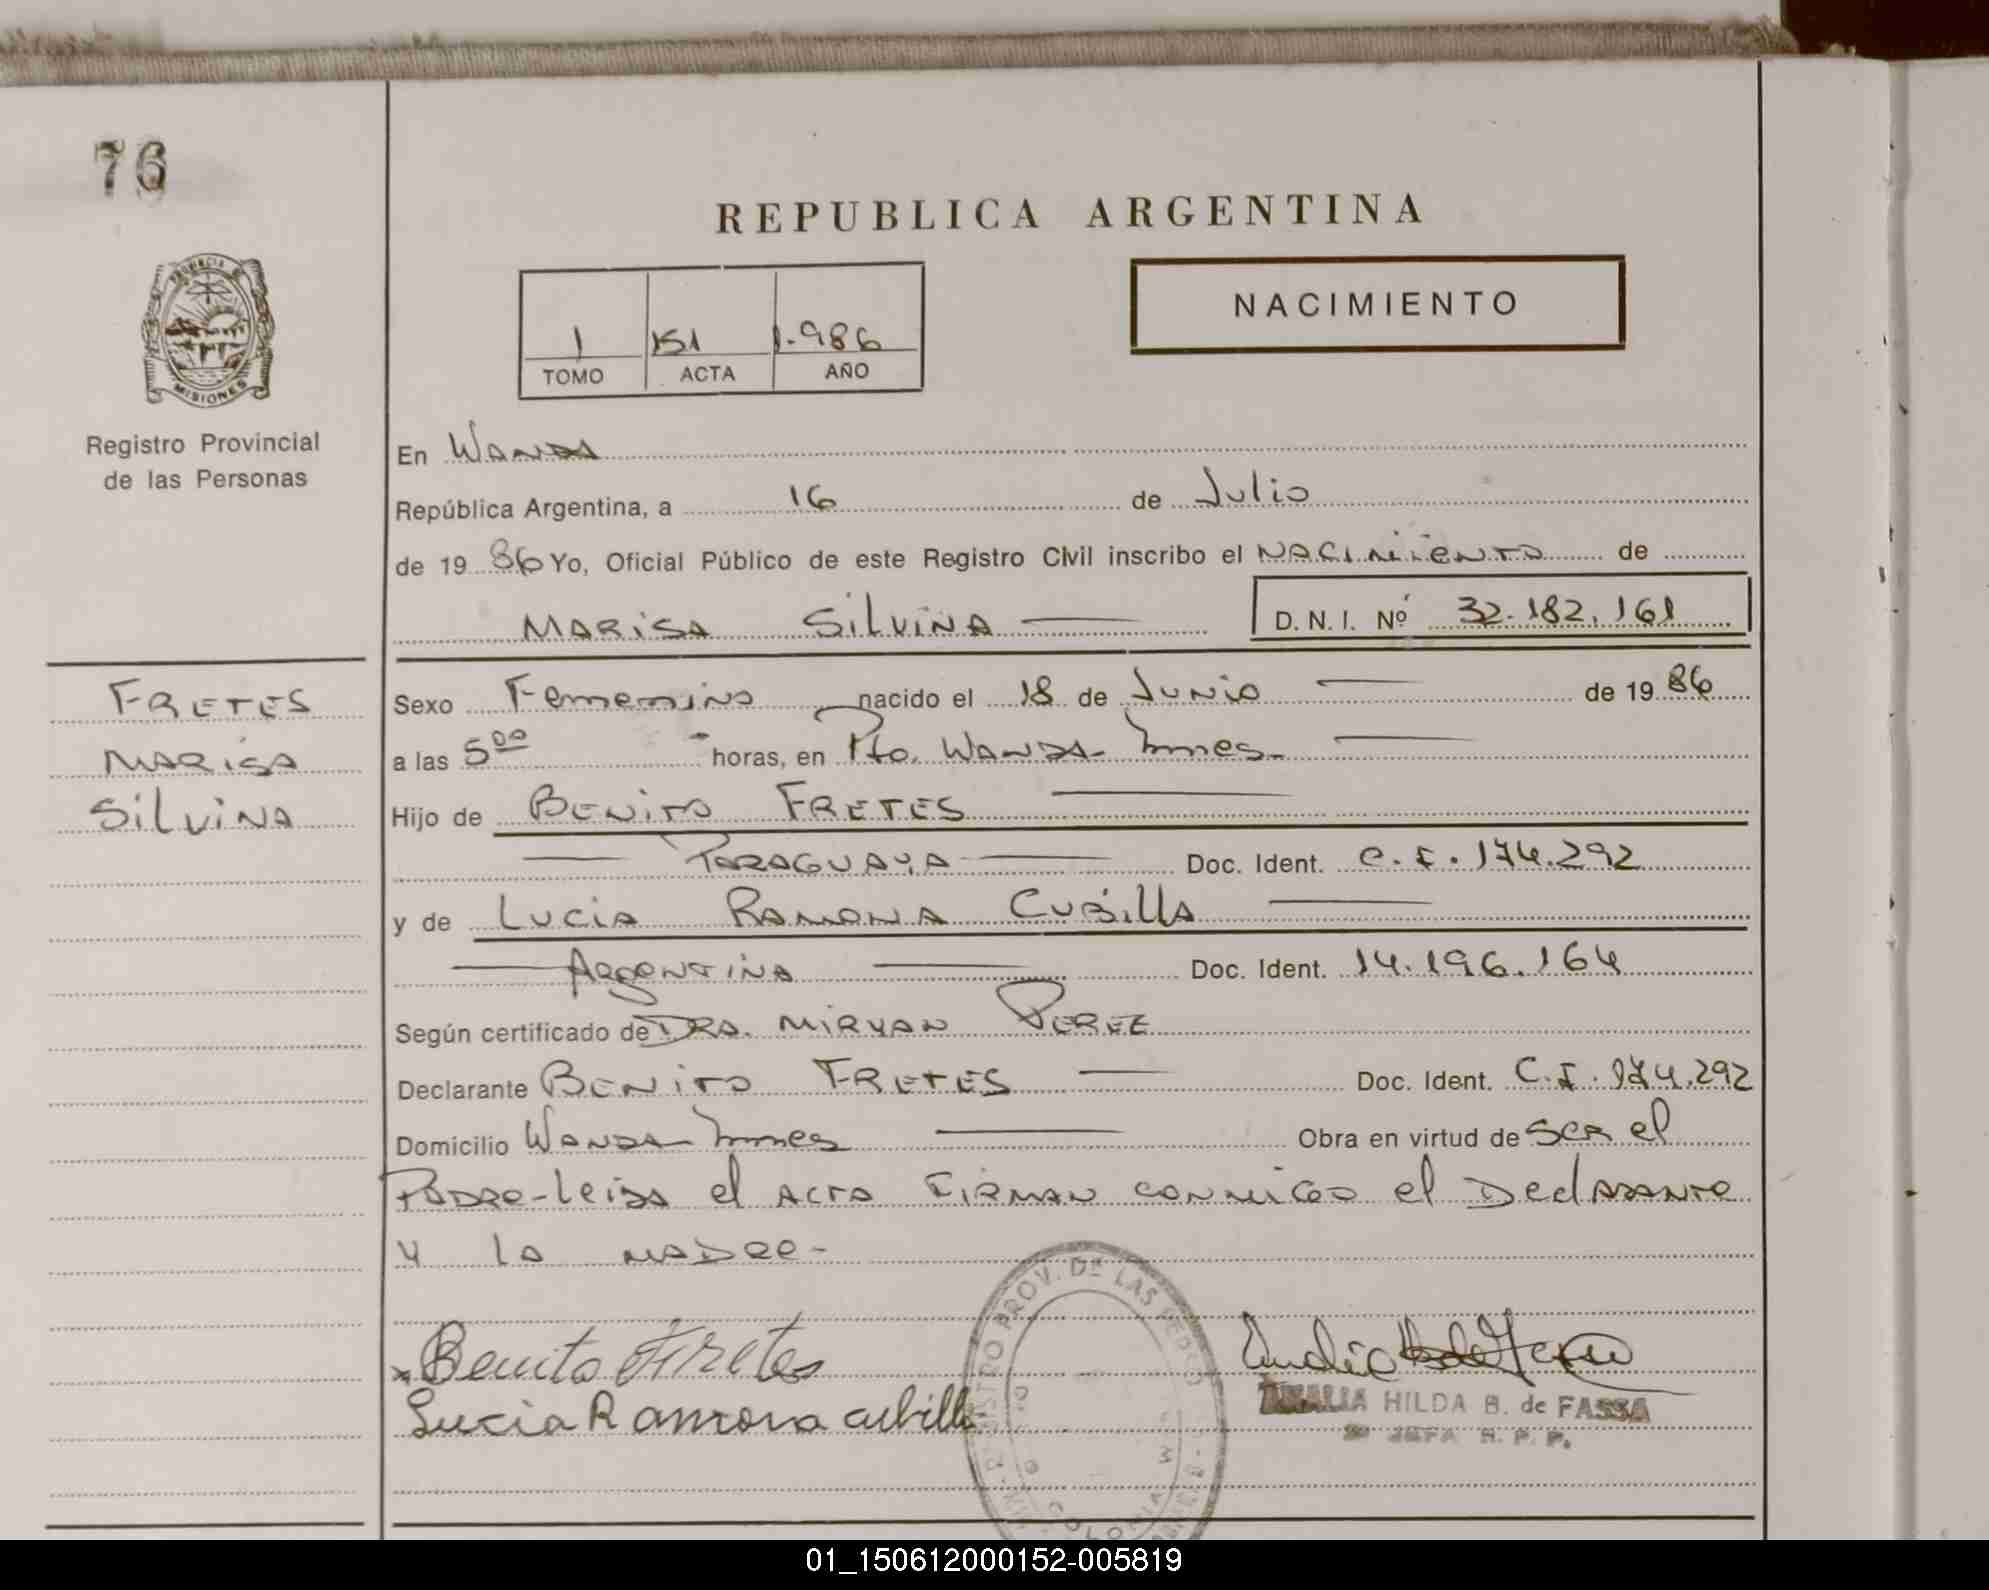 76
REPUBLICA ARGENTINA
PROVINCIA DE
MISIONES
Registro Provincial
de las Personas
1 151 1.986
TOMO ACTA AÑO
NACIMIENTO
En WANDA
República Argentina, a 16 de Julio
de 19 86 Yo, Oficial Público de este Registro Civil inscribo el NACIMIENTO de
MARISA SILVINA D.N.I. Nº 32.182.161
FRETES
MARISA
SILVINA
Sexo Femenino nacido el 18 de Junio de 19 86
a las 5 00 horas, en Pto. WANDA-
Hijo de BENITO FRETES
PARAGUAYA Doc. Ident. C.I. 174.292
y de LUCIA RAMONA CUBILLA
ARGENTINA Doc. Ident. 14.196.164
Según certificado de DRA. MIRYAN PEREZ
Declarante BENITO FRETES Doc. Ident. C.I. 174.292
Domicilio WANDA- Obra en virtud de SER el
PADRE-Leida el ACTA FIRMAN CONMIGO el DeclARANTE
Y LA MADRE-
Benito Fretes
Lucia Ramona Cubilla
HILDA B. de FASSA
JEFA R. P. P.
REGISTRO PROV. DE LAS PERSO
COLONIA
01_150612000152-005819